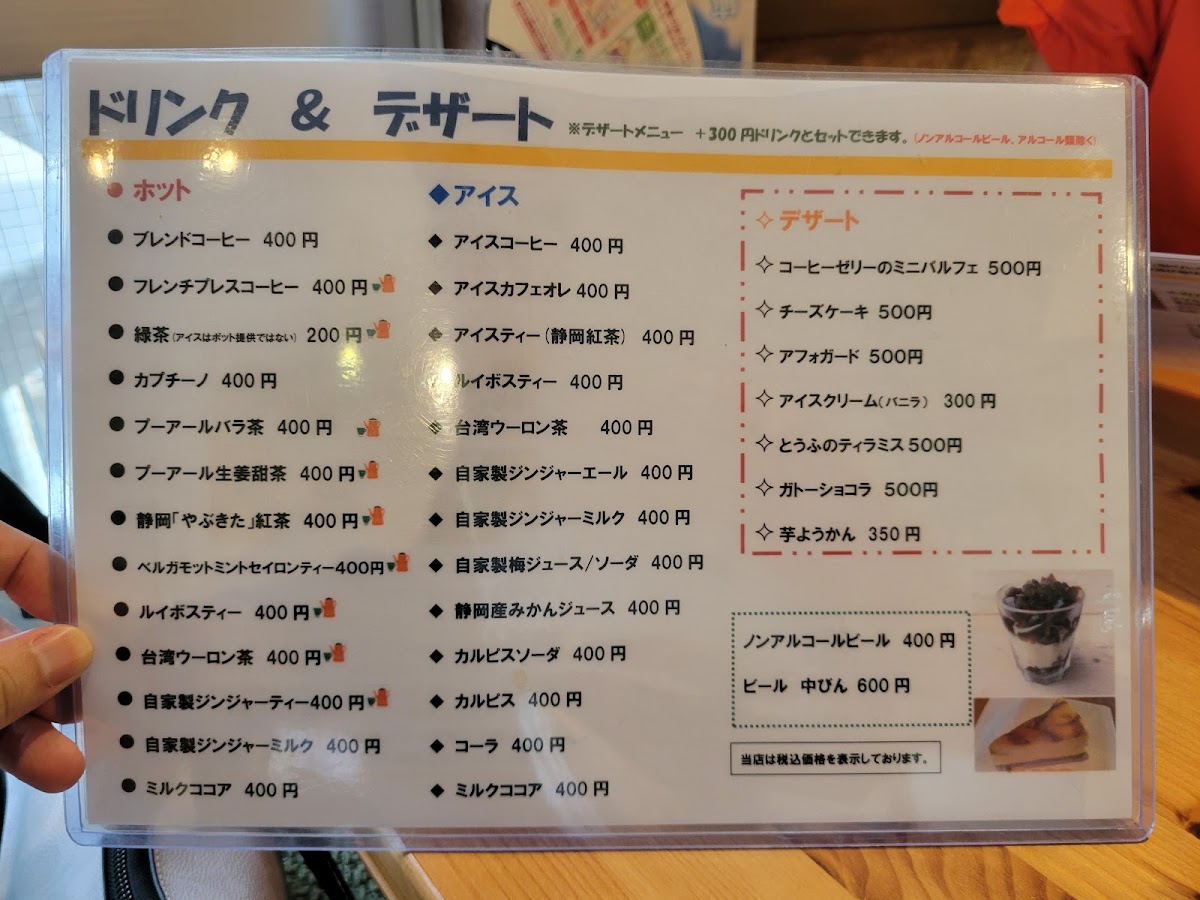 ドリンク & デザート ※デザートメニュー +300円ドリンクとセットできます。(ノンアルコールビール、アルコール類除く)
● ホット
● ブレンドコーヒー 400円
● フレンチプレスコーヒー 400円
● 緑茶(アイスはポット提供ではない) 200円
● カプチーノ 400円
● プーアールバラ茶 400円
● プーアール生姜甜茶 400円
● 静岡「やぶきた」紅茶 400円
● ベルガモットミントセイロンティー400円
● ルイボスティー 400円
● 台湾ウーロン茶 400円
● 自家製ジンジャーティー400円
● 自家製ジンジャーミルク 400円
● ミルクココア 400円
◆アイス
◆ アイスコーヒー 400円
◆ アイスカフェオレ 400円
◆ アイスティー(静岡紅茶) 400円
ルイボスティー 400円
◆ 台湾ウーロン茶 400円
◆ 自家製ジンジャーエール 400円
◆ 自家製ジンジャーミルク 400円
◆ 自家製梅ジュース/ソーダ 400円
◆ 静岡産みかんジュース 400円
◆ カルピスソーダ 400円
◆ カルピス 400円
◆ コーラ 400円
◆ ミルクココア 400円
✧デザート
✧ コーヒーゼリーのミニパルフェ 500円
✧ チーズケーキ 500円
✧ アフォガード 500円
✧ アイスクリーム(バニラ) 300円
✧ とうふのティラミス500円
✧ ガトーショコラ 500円
✧ 芋ようかん 350円
ノンアルコールビール 400円
ビール 中びん 600円
当店は税込価格を表示しております。